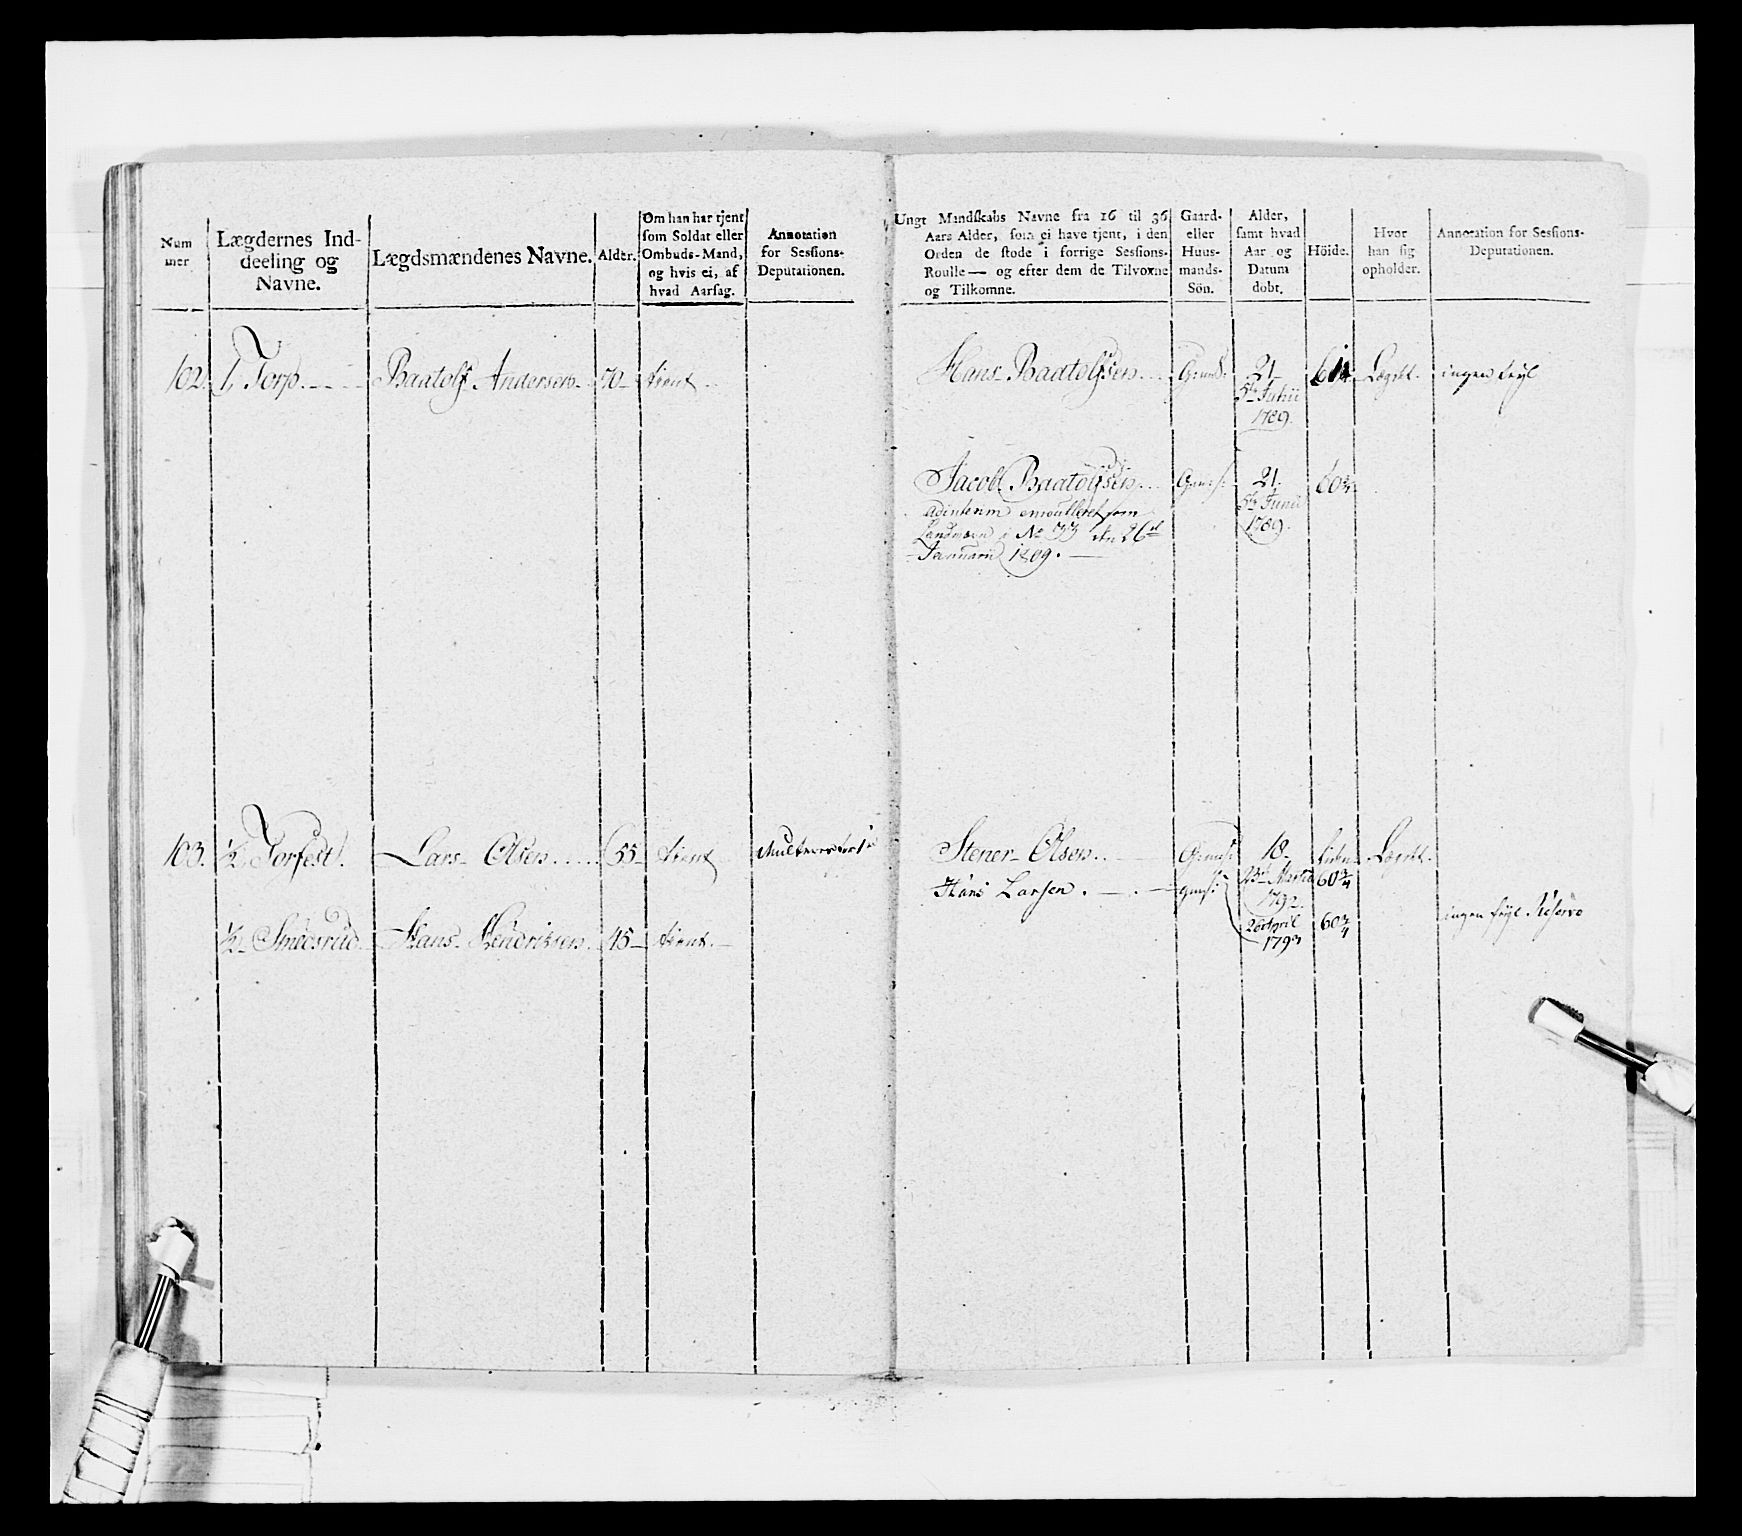 Num
mer
Lægdernes Ind-
deeling og
Navne.
Lægdsmændenes Navne.
Alder.
Om han har tjent
som Soldat eller
Ombuds-Mand,
og hvis ei, af
hvad Aarsag.
Annotation
for Sessions-
Deputationen.
102. 1, Torp. Baatolf Andersen 70 tient
103. ½ Torfest. Lars Olsen 55 tient
½ Smedsrud Hans Hendriksen 45 tient.
Ungt Mandskabs Navne fra 16 til 36
Aars Alder, som ei have tjent, i den
Orden de stode i forrige Sessions-
Roulle — og efter dem de Tilvoxne
og Tilkomne.
Gaard-
eller
Huus-
mands-
Sön.
Alder,
samt hvad
Aar og
Datum
dobt.
Höide.
Hvor
han sig
opholder.
Annotation for Sessions-
Deputationen.
Hans Baatolfsen Gmds. 21 Lægdet. ingen feyl
1789.
Jacob Baatolfsen Gmds: 21. 60¾
adinterim enroulleret som
5te Junii
Landværn i No 33 den 26de
1789.
Januarii 1809.
Stener Olsen Gmds: 18 Lægdet.
Hans Larsen. gmds: 60¾
1792.
26 April 60¾ ingen feyl Reserve
1793